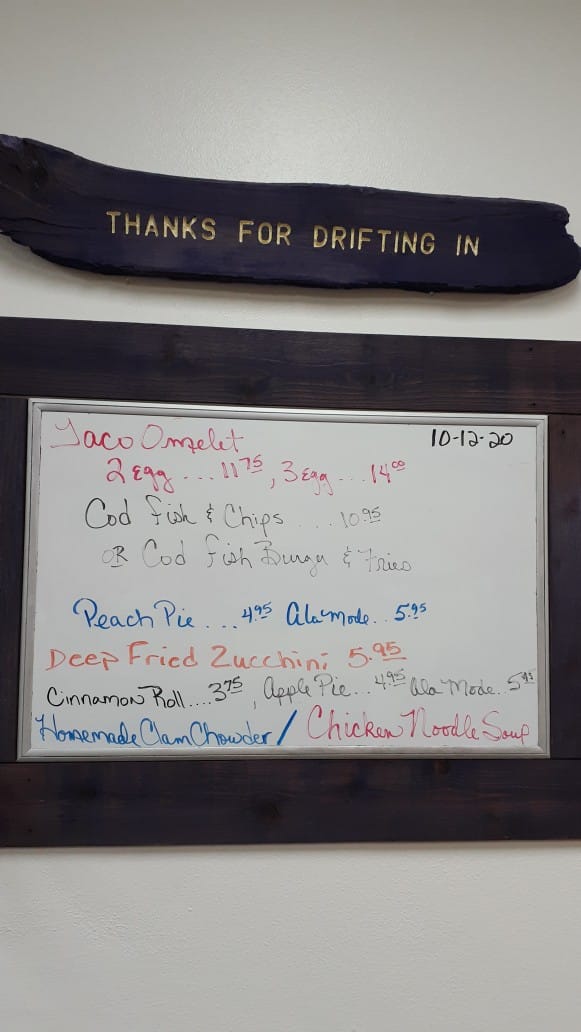 THANKS FOR DRIFTING IN
Taco Omelet 10-12-20
2 Egg ... 11 75, 3 Egg ... 14 00
Cod Fish & Chips .... 10.95
OR Cod Fish Burger & Fries
Peach Pie .... 4.95 Ala Mode.. 5.95
Deep Fried Zucchini 5.95
Cinnamon Roll.... 3 75, Apple Pie... 4.95 Ala Mode.. 5 95
Homemade Clam Chowder / Chicken Noodle Soup